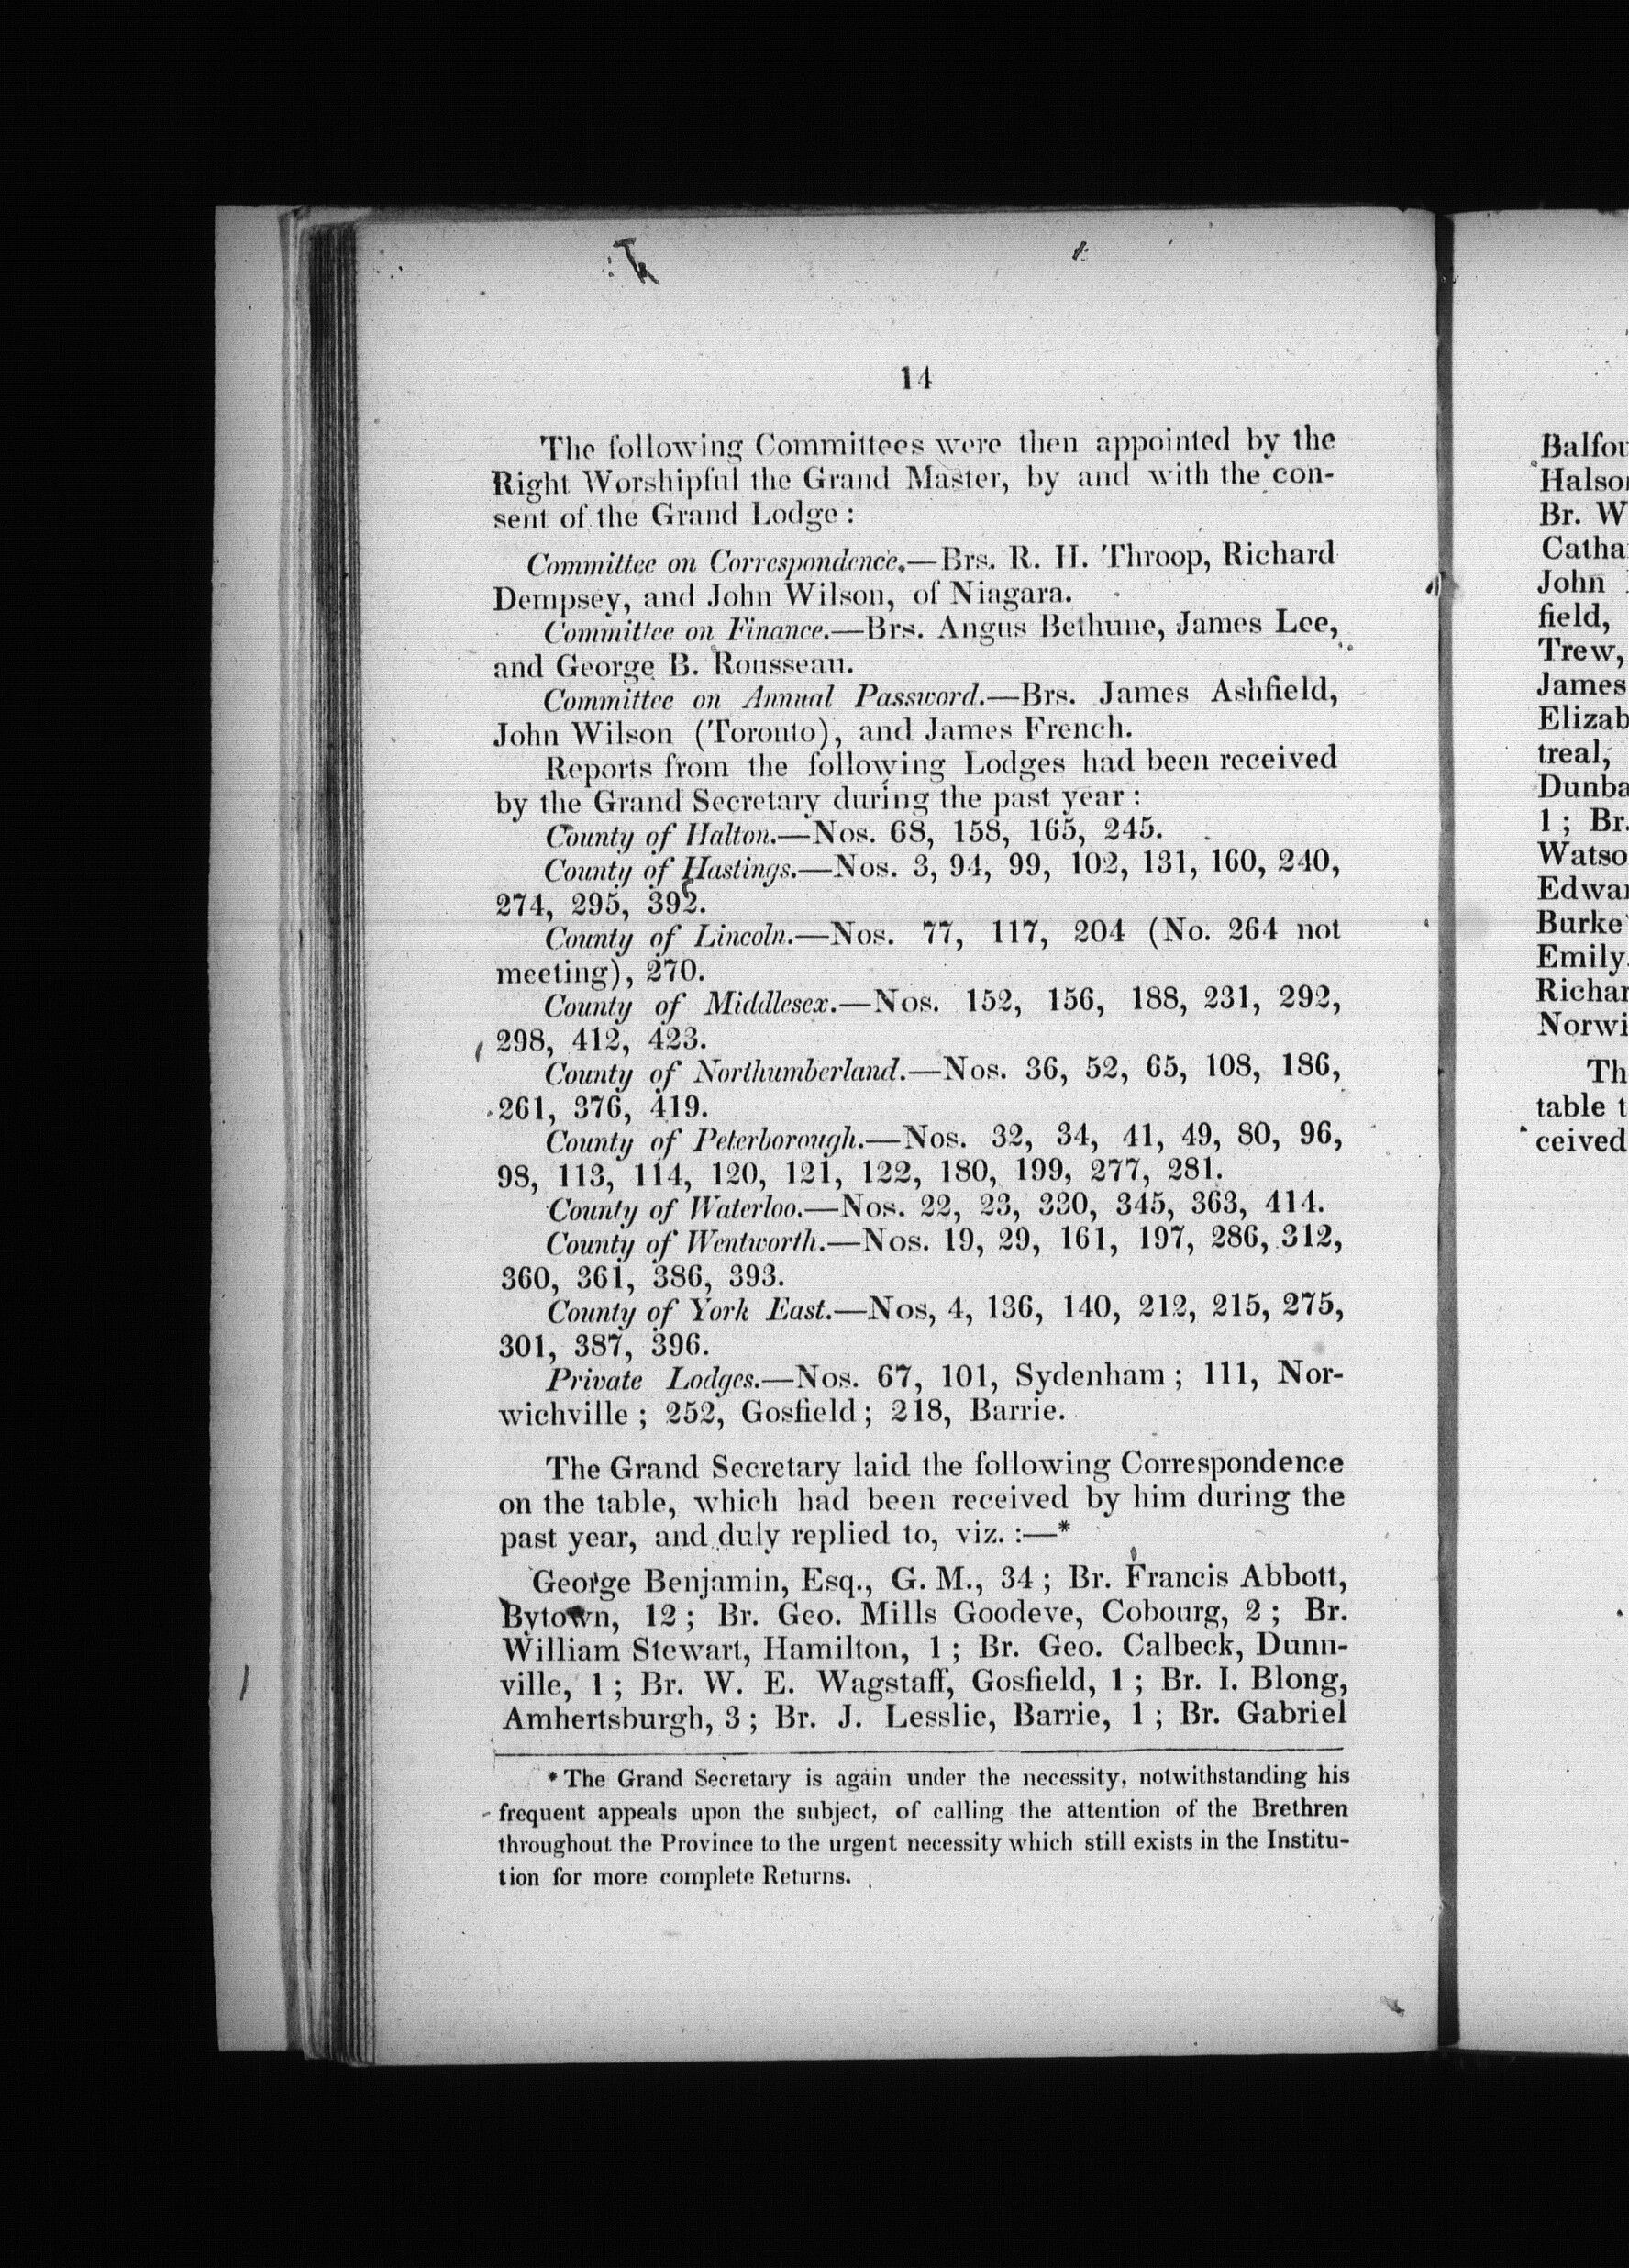 14
The following Committees were then appointed by the
Right Worshipful the Grand Master, by and with the con-
sent of the Grand Lodge :
Committee on Correspondence.—Brs. R. H. Throop, Richard
Dempsey, and John Wilson, of Niagara.
Committee on Finance.—Brs. Angus Bethune, James Lee,
and George B. Rousseau.
Committee on Annual Password.—Brs. James Ashfield,
John Wilson (Toronto), and James French.
Reports from the following Lodges had been received
by the Grand Secretary during the past year :
County of Halton.—Nos. 68, 158, 165, 245.
County of Hastings.—Nos. 3, 94, 99, 102, 131, 160, 240,
274, 295, 392.
County of Lincoln.—Nos. 77, 117, 204 (No. 264 not
meeting), 270.
County of Middlesex.—Nos. 152, 156, 188, 231, 292,
298, 412, 423.
County of Northumberland.—Nos. 36, 52, 65, 108, 186,
261, 376, 419.
County of Peterborough.—Nos. 32, 34, 41, 49, 80, 96,
98, 113, 114, 120, 121, 122, 180, 199, 277, 281.
County of Waterloo.—Nos. 22, 23, 330, 345, 363, 414.
County of Wentworth.—Nos. 19, 29, 161, 197, 286, 312,
360, 361, 386, 393.
County of York East.—Nos, 4, 136, 140, 212, 215, 275,
301, 387, 396.
Private Lodges.—Nos. 67, 101, Sydenham ; 111, Nor-
wichville ; 252, Gosfield ; 218, Barrie.
The Grand Secretary laid the following Correspondence
on the table, which had been received by him during the
past year, and duly replied to, viz. :—*
George Benjamin, Esq., G. M., 34 ; Br. Francis Abbott,
Bytown, 12 ; Br. Geo. Mills Goodeve, Cobourg, 2 ; Br.
William Stewart, Hamilton, 1 ; Br. Geo. Calbeck, Dunn-
ville, 1 ; Br. W. E. Wagstaff, Gosfield, 1 ; Br. I. Blong,
Amhertsburgh, 3 ; Br. J. Lesslie, Barrie, 1 ; Br. Gabriel
* The Grand Secretary is again under the necessity, notwithstanding his
frequent appeals upon the subject, of calling the attention of the Brethren
throughout the Province to the urgent necessity which still exists in the Institu-
tion for more complete Returns.
Balfou
Halso
Br. W
Catha
John
field,
Trew,
James
Elizab
treal,
Dunba
1 ; Br.
Watso
Edwa
Burke
Emily
Richar
Norwi
Th
table t
ceived